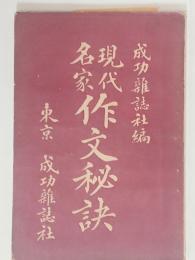 成功雜誌社編
現代名家
作文秘訣
東京 成功雜誌社